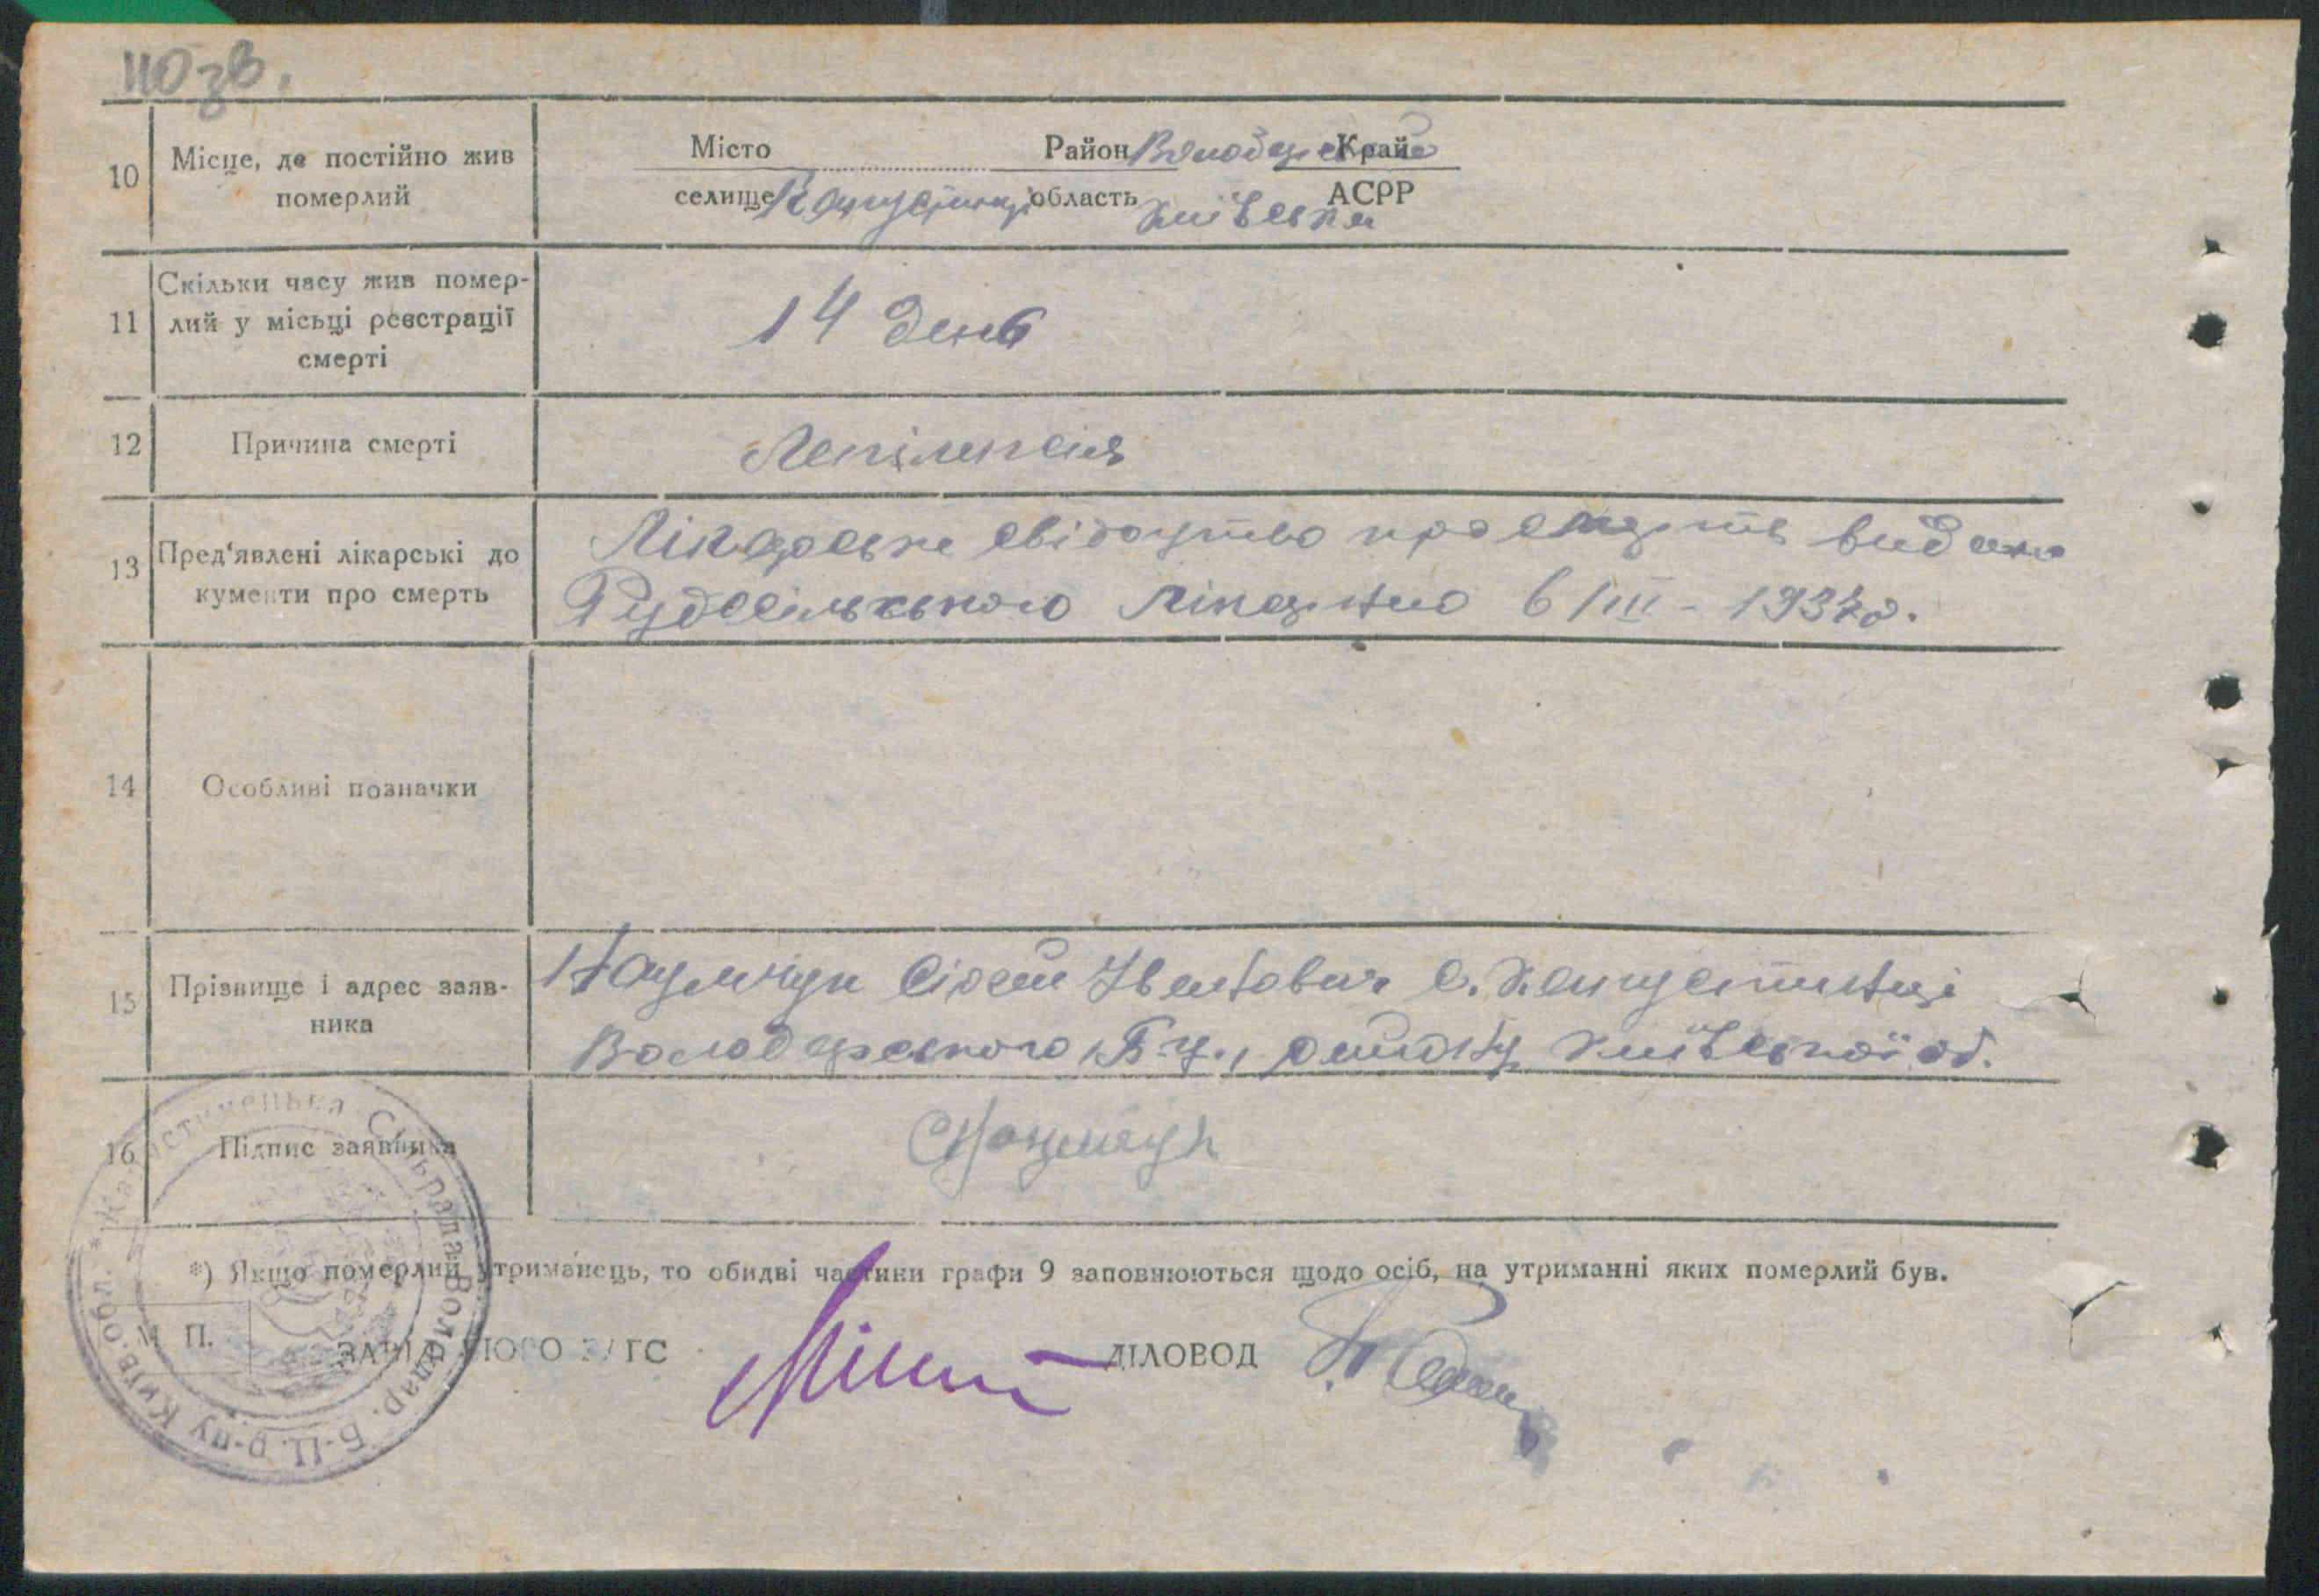 110 зв.
10 Місце, де постійно жив померлий
Місто Район Володарський Край
селище Капустинці область Київська АСРР
11 Скільки часу жив помер-
лий у місьці реєстрації
смерті
14 день
12 Причина смерті
Лепілепсія
13 Пред'явлені лікарські до
кументи про смерть
Лікарське свідоцтво про смерть видано
Рудосільського 6/III - 1937 р.
14 Особливі позначки
15 Прізвище і адрес заяв-
ника
Наумчук Іванович с. Капустинці
Володарського Б-Ц. району Київської об.
16 Підпис заявника
СНаумчук
*) Якщо померлий утриманець, то обидві частини графи 9 заповнюються щодо осіб, на утриманні яких померлий був.
М. П.
ЗАВІДУЮЧОГО ЗАГС
ДІЛОВОД
Капустинецька Сільрада Володар. Б-Ц. р-ну Київ. обл. *